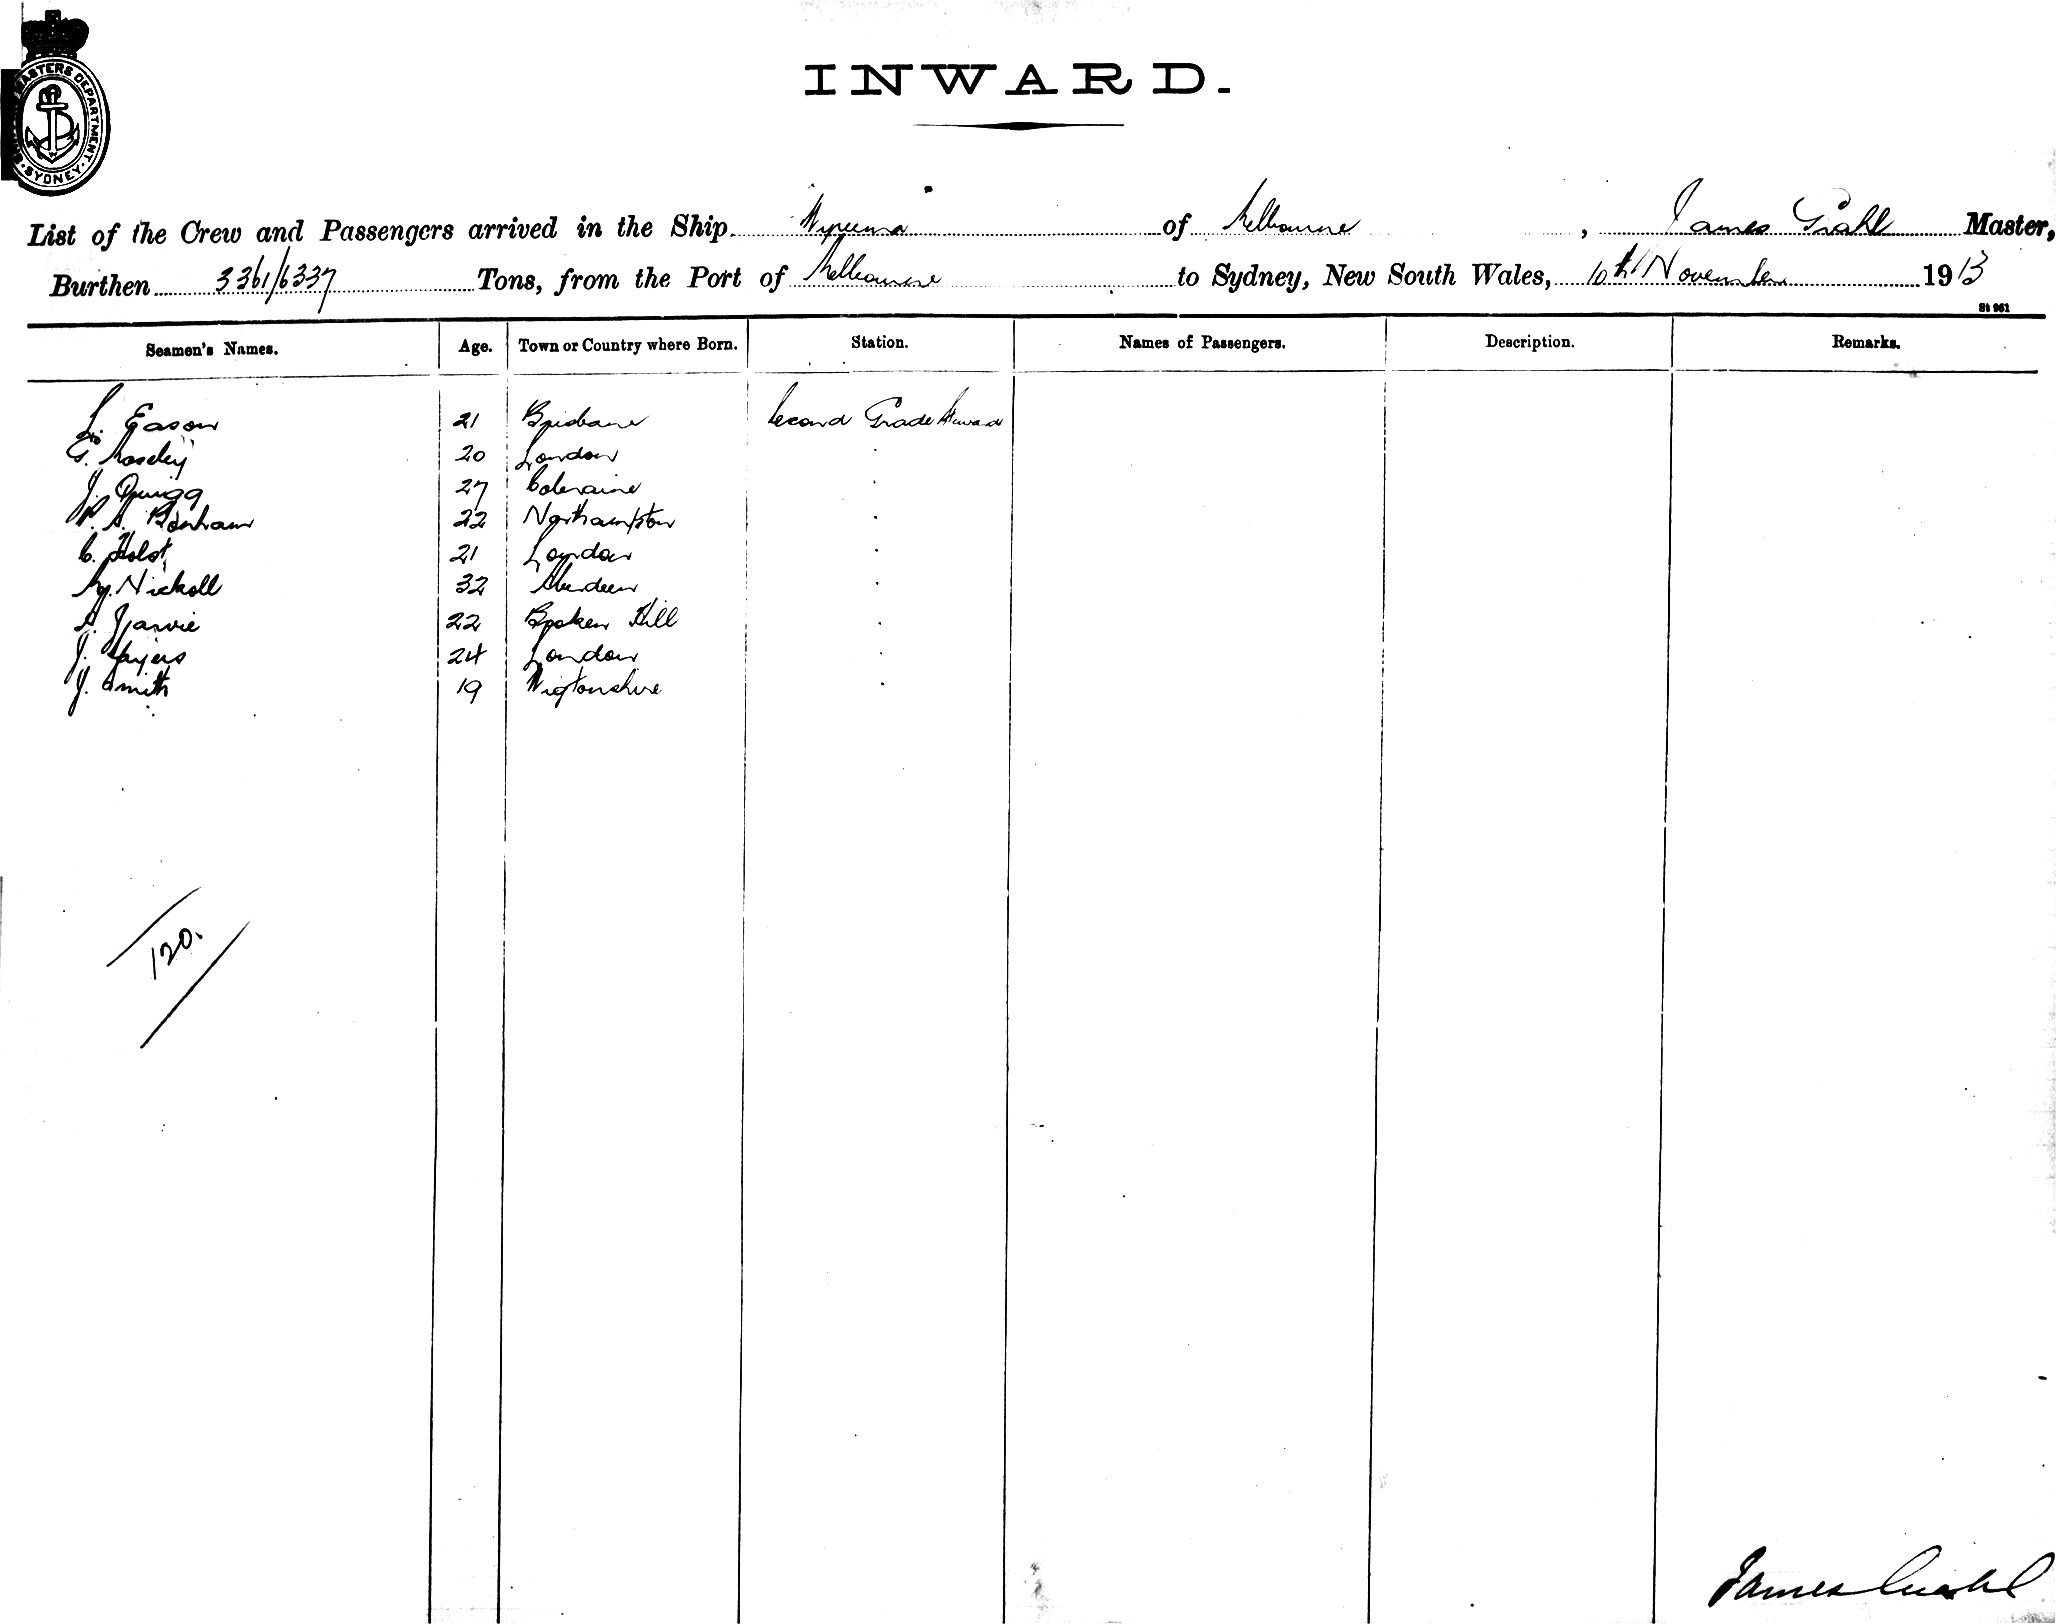 MASTERS DEPARTMENT
SYDNEY
INWARD.
List of the Crew and Passengers arrived in the Ship Wyreema of Melbourne, James Grahl Master,
Burthen 3361/6337 Tons, from the Port of Melbourne to Sydney, New South Wales, 10th November 1913
St 961
Seamen's Names. Age. Town or Country where Born. Station. Names of Passengers. Description. Remarks.
L. Eason 21 Brisbane Second Grade Steward
G. Moseley 20 London "
J. Quigg 27 Coleraine "
P. A. Bonham 22 Northampton "
C. Holst 21 London "
Nickoll 32 Aberdeen "
A. Jarvie 22 Broken Hill "
J. Sayers 24 London "
J. Smith 19 Wigtonshire "
120.
James Grahl